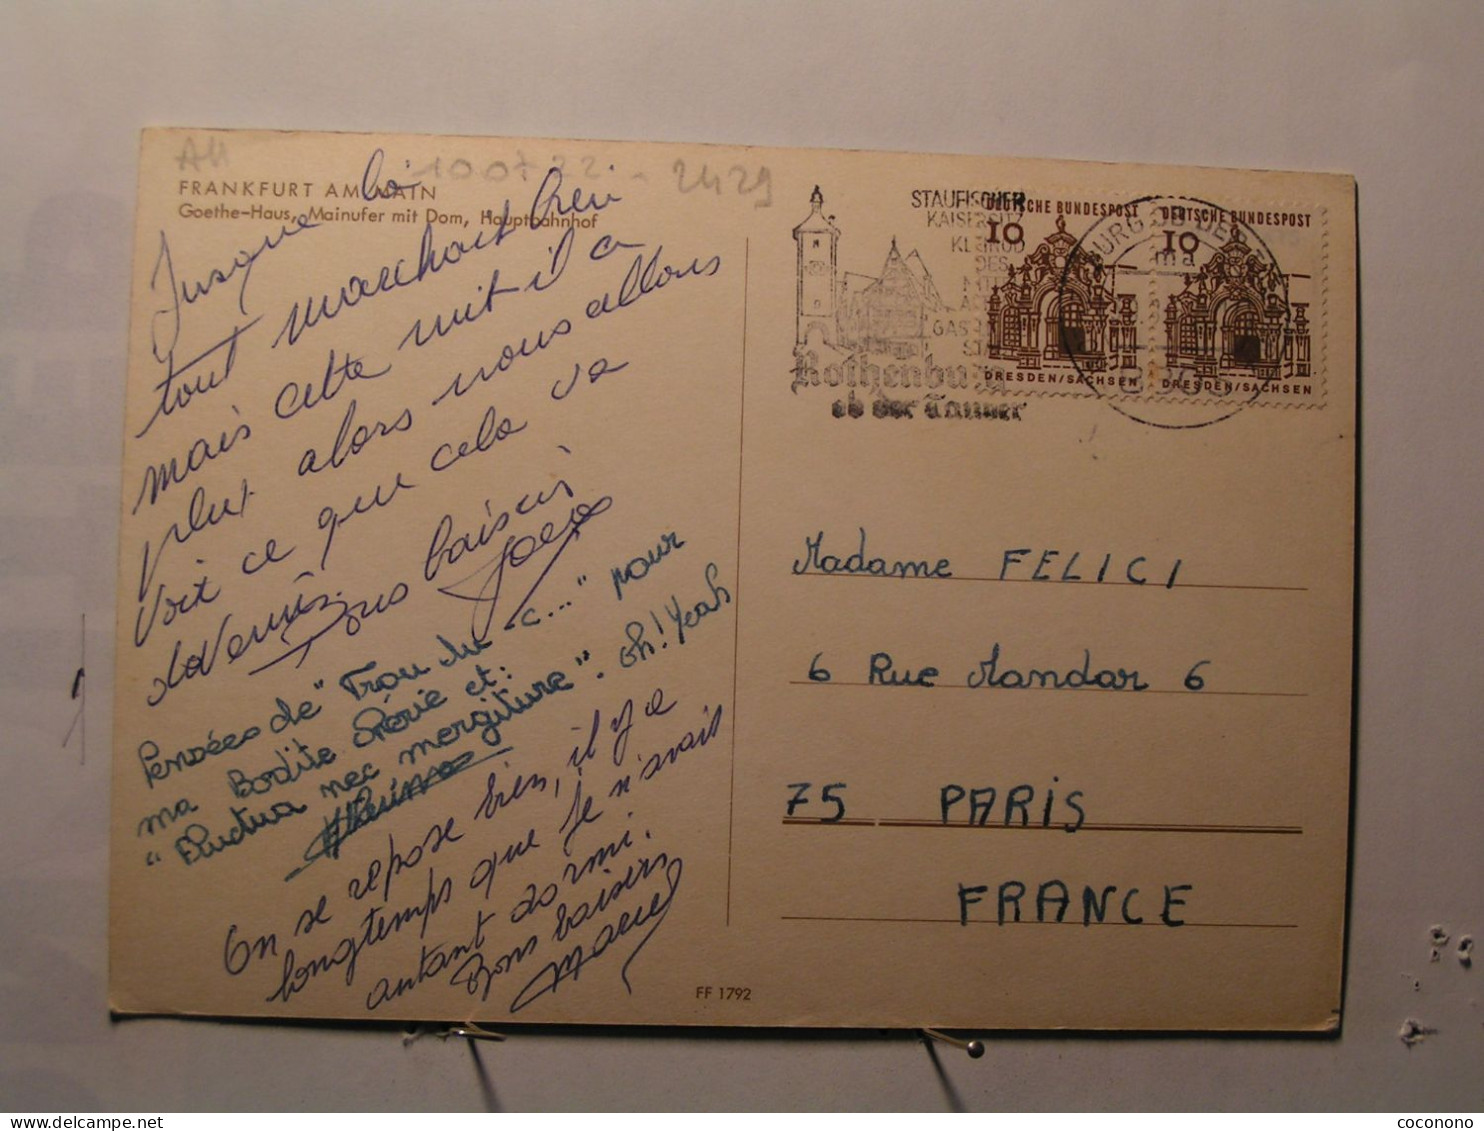 AM 100722 - 2429
FRANKFURT AM MAIN
Goethe-Haus, Mainufer mit Dom, Hauptbahnhof
Jusque là
tout marchait bien
mais cette nuit il a
plut alors nous allons
voir ce que cela va
devenir.
Bons baisers
Pensées de "Trou du c..." pour
ma Bodite Chérie et:
"Fluctua nec mergiture". oh! Yeah
On se repose bien, il y a
longtemps que je n'avais
autant dormi.
Bons baisers
Marcel
FF 1792
STAUFISCHER
KAISERSITZ
KLEINOD
DES
Rothenburg
ob der Tauber
DEUTSCHE BUNDESPOST
10
DRESDEN/SACHSEN
DEUTSCHE BUNDESPOST
10
DRESDEN/SACHSEN
Madame FELICI
6 Rue Mandar 6
75 PARIS
FRANCE
coconono